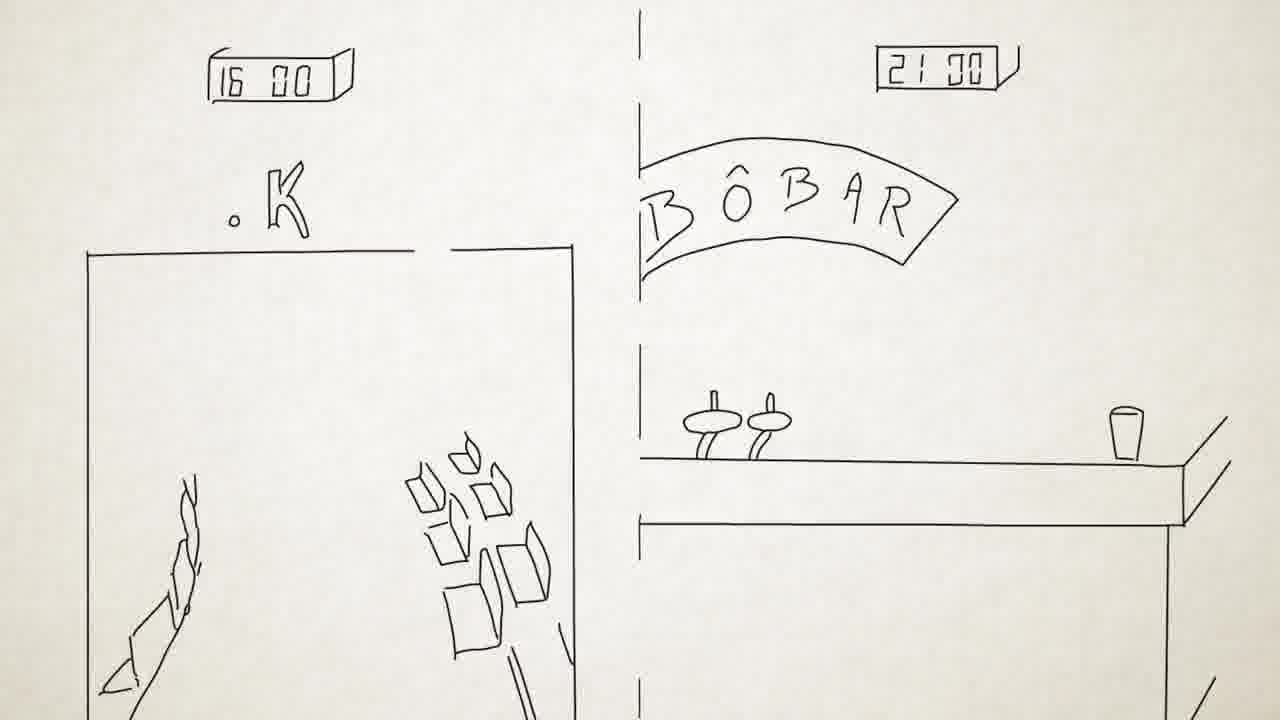 16 00
21 00
.K
BÔBAR